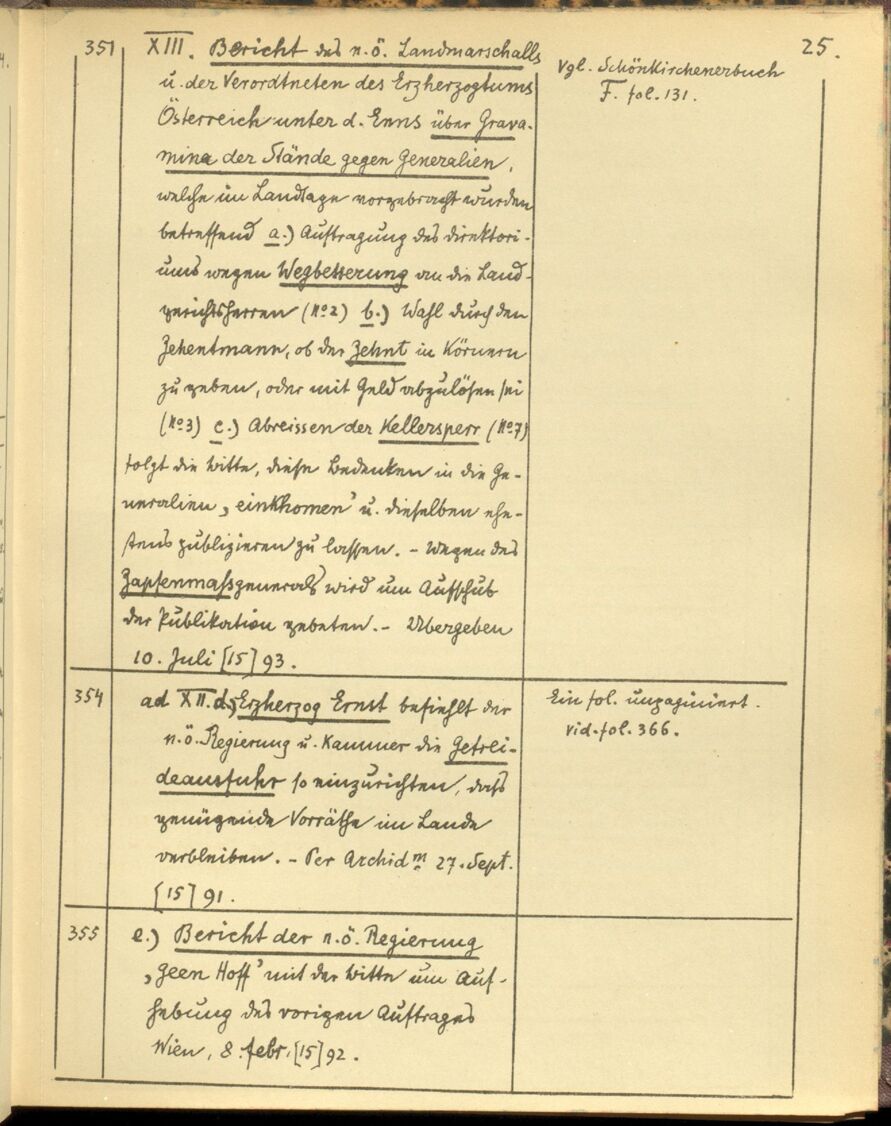 25.
351 XIII. Bericht des n.ö. Landmarschalls
u. der Verordneten des Erzherzogtums
Österreich unter d. Enns über Grava-
mina der Stände gegen Generalien,
welche im Landtage vorgebracht wurden
betreffend a.) Auftragung des Direktori-
ums wegen Wegbesserung an die Land-
gerichtsherren (No 2) b.) Wahl durch den
Zehentmann, ob der Zehnt in Körnern
zu geben, oder mit Geld abzulösen sei
(No 3) c.) Abreissen der Kellersperr (No 7)
folgt die Bitte, diese Bedenken in die Ge-
neralien „einkhomen" u. dieselben ehe-
stens publizieren zu lassen. - Wegen des
Zapfenmaßgenerals wird um Aufschub
der Publikation gebeten. - Übergeben
10. Juli [15]93.
Vgl. Schönkirchenerbuch
F. fol. 131.
354 ad XII. d.) Erzherzog Ernst befiehlt der
n.ö. Regierung u. Kammer die Getrei-
deausfuhr so einzurichten, daß
genügende Vorräthe im Lande
verbleiben. - Per Archid m 27. Sept.
[15]91.
Ein fol. unpaginiert.
vid. fol. 366.
355 e.) Bericht der n.ö. Regierung
„geen Hoff" mit der Bitte um Auf-
hebung des vorigen Auftrages
Wien, 8. febr. [15]92.